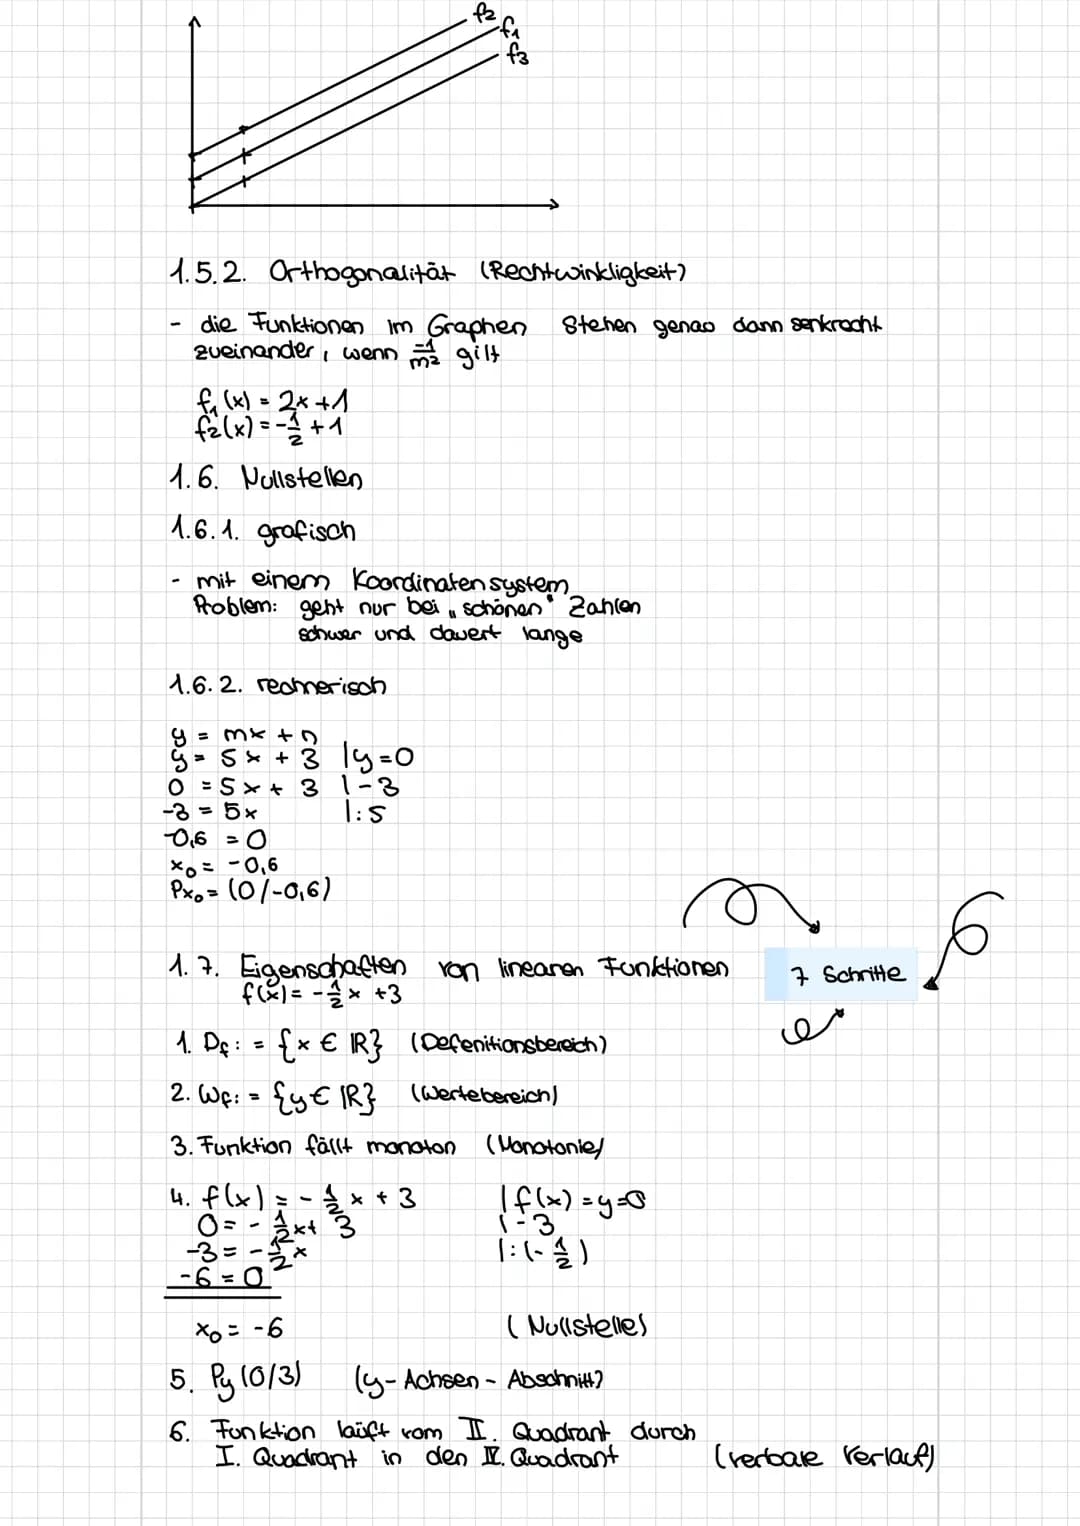 f2
f1
f3
1.5.2. Orthogonalität (Rechtwinkligkeit)
- die Funktionen im Graphen stehen genau dann senkrecht
zueinander, wenn -1/m2 gilt
f1(x) = 2x +1
f2(x) = -1/2 +1
1.6. Nullstellen
1.6.1. grafisch
- mit einem Koordinatensystem
Problem: geht nur bei „schönen" Zahlen
schwer und dauert lange
1.6.2. rechnerisch
y = mx + n
y = 5x + 3 |y=0
0 = 5x + 3 |-3
-3 = 5x |:5
-0,6 = 0
x0 = -0,6
Px0 = (0/-0,6)
1.7. Eigenschaften von linearen Funktionen
7 Schritte
f(x) = -1/2 x +3
1. Df: = {x ∈ ℝ} (Defenitionsbereich)
2. Wf: = {y ∈ ℝ} (Wertebereich)
3. Funktion fällt monoton (Monotonie)
4. f(x) = - 1/2 x + 3 |f(x) = y=0
0 = - 1/2 x + 3 |-3
-3 = - 1/2 x |:(- 1/2)
-6 = 0
x0 = -6 (Nullstelle)
5. Py (0/3) (y-Achsen-Abschnitt)
6. Funktion läuft vom II. Quadrant durch
I. Quadrant in den IV. Quadrant (verbale Verlauf)